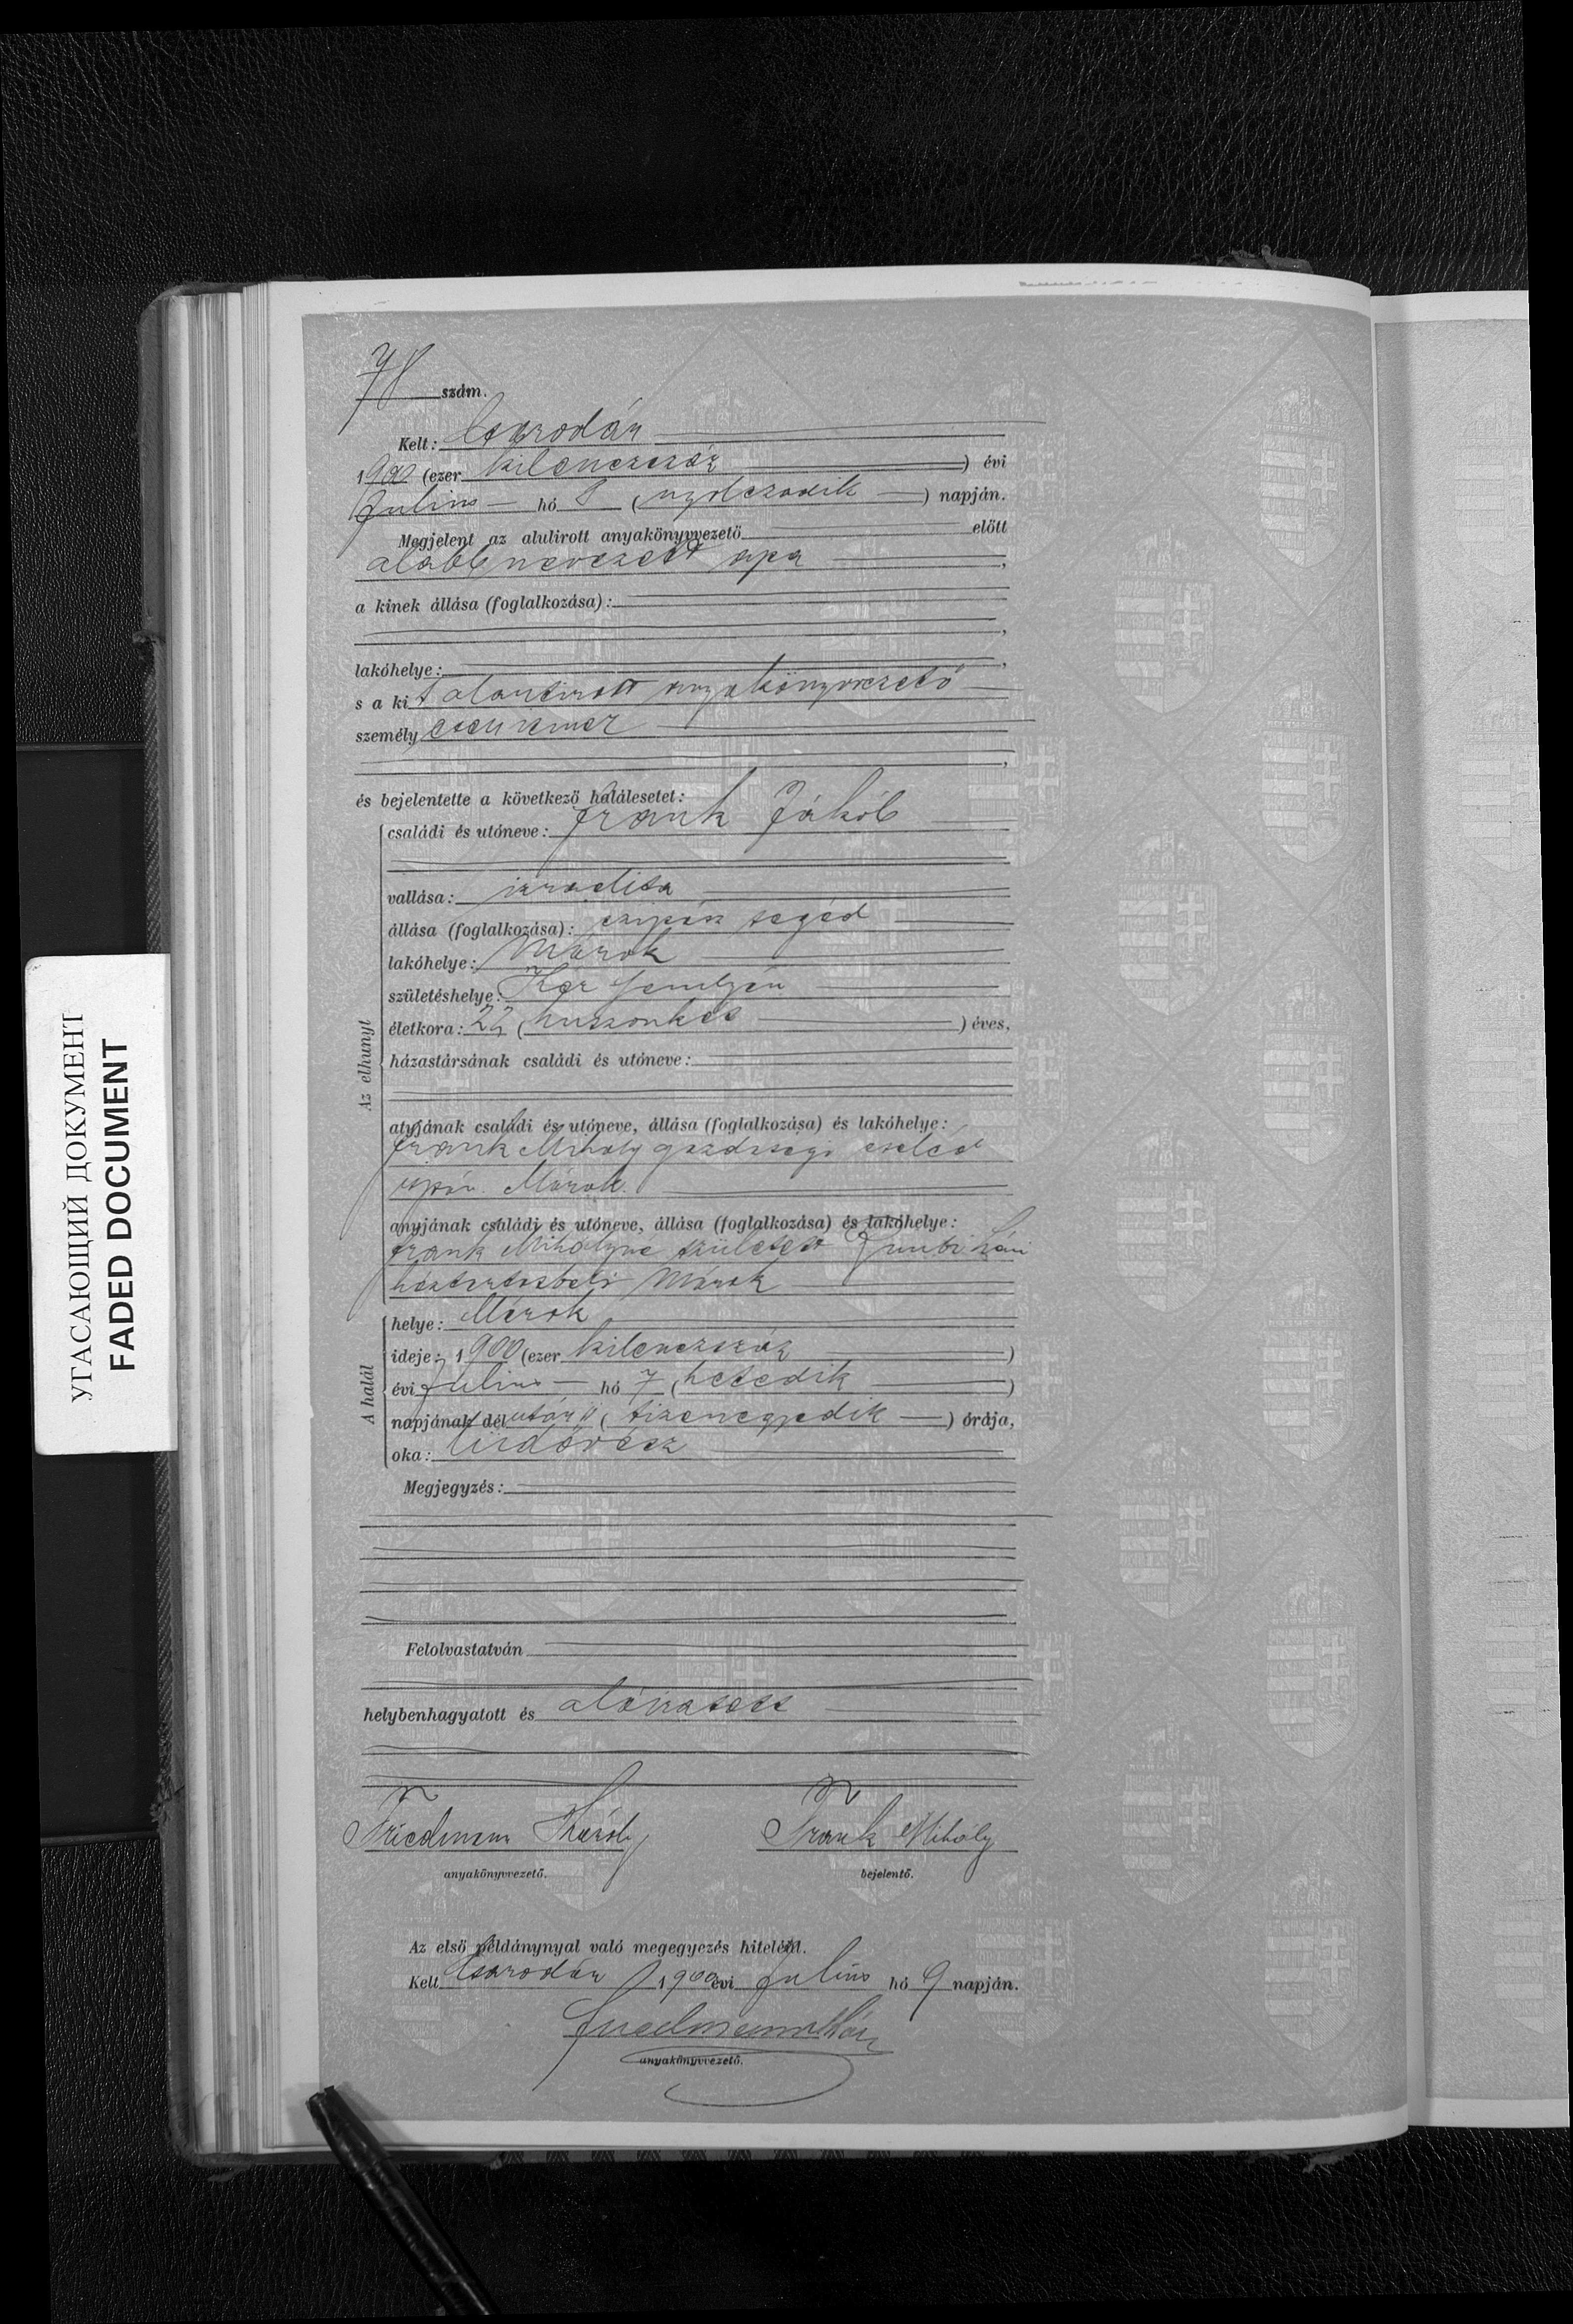 УГАСАЮЩИЙ ДОКУМЕНТ
FADED DOCUMENT
78 szám.
Kelt: Csarodán
1900 (ezer kilenczszáz) évi
Julius hó 8 (nyolczadik) napján.
Megjelent az alulirott anyakönyvvezető előtt
alább nevezett apa,
a kinek állása (foglalkozása):
lakóhelye:
s a kit alantirott anyakönyvvezető
személy esen ismer
és bejelentette a következő halálesetet:
Az elhunyt
családi és utóneve: Frank Jákób
vallása: izraelita
állása (foglalkozása): czipész segéd
lakóhelye: Márok
születéshelye:
életkora: 22 (huszonkét) éves,
házastársának családi és utóneve:
atyjának családi és utóneve, állása (foglalkozása) és lakóhelye:
Frank Mihály gazdasági cseléd
Márok.
anyjának családi és utóneve, állása (foglalkozása) és lakóhelye:
Frank Mihályné született
háztartásbeli Márok
A halál
helye: Márok
ideje: 1900 (ezer kilenczszáz)
évi Julius hó 7 (hetedik)
napjának délután 11 (tizenegyedik) órája,
oka: tüdővész
Megjegyzés:
Felolvastatván
helybenhagyatott és aláiratott
Friedmann Károly
Frank Mihály
anyakönyvvezető.
bejelentő.
Az első példánynyal való megegyezés hiteléül.
Kelt Csarodán 1900 évi Julius hó 9 napján.
anyakönyvvezető.